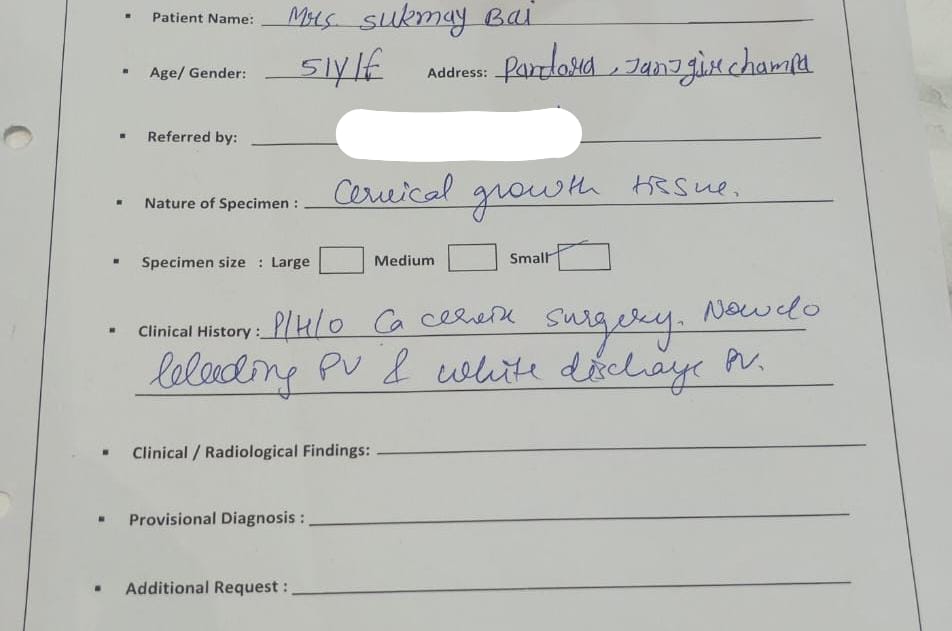 ▪ Patient Name: Mrs. Sukmay Bai
▪ Age/ Gender: 51Y/F Address: Pandoria, Janjgir champa
▪ Referred by:
▪ Nature of Specimen : Cervical growth tissue.
▪ Specimen size : Large Medium Small
▪ Clinical History : P/H/O Ca cervix surgery. Now c/o
bleeding PV & white discharge PV.
▪ Clinical / Radiological Findings:
▪ Provisional Diagnosis :
▪ Additional Request :